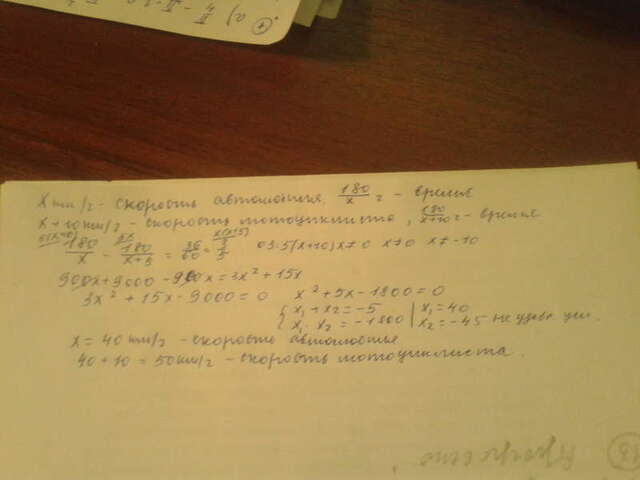 a) π/4
x км/г - скорость автомобиля, 180/x г - время
x+10 км/г - скорость мотоциклиста, 180/x+10 г - время
180/x - 180/x+5 = 36/60 = 3/5 03: 5(x+10)x≠0 x≠0 x≠-10
900x+9000-900x=3x²+15x
3x²+15x-9000=0 x²+5x-1800=0
{ x₁+x₂=-5 | x₁=40
{ x₁·x₂=-1800 | x₂=-45 не удов. усл.
x=40 км/г - скорость автомобиля
40+10=50 км/г - скорость мотоциклиста.